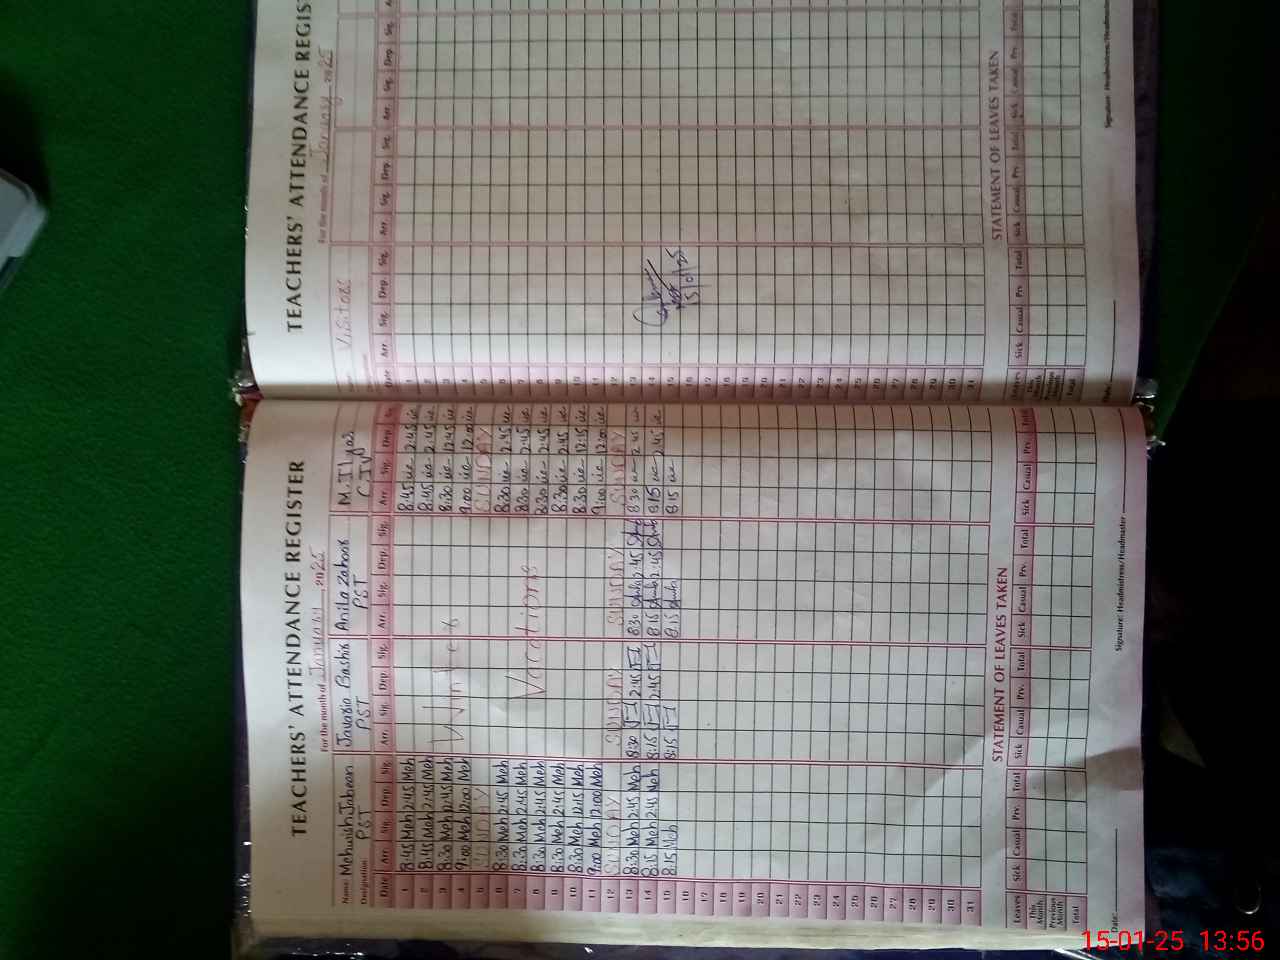 TEACHERS' ATTENDANCE REGISTER
For the month of January 2025
Name: Mehwish Jabeen Javaria Bashir Anila Zahoor M.Ilyas
Designation PST PST PST C.IV
Date Arr. Sig. Dep. Sig. Arr. Sig. Dep. Sig. Arr. Sig. Dep. Sig. Arr. Sig. Dep. Sig.
1 8:45 Meh 2:45 Meh 8:45 2:45
2 8:45 Meh 2:45 Meh 8:45 2:45
3 8:30 Meh 12:45 Meh 8:30 12:45
4 9:00 Meh 12:00 Meh 9:00 12:00
5 SUNDAY SUNDAY
6 8:30 Meh 2:45 Meh 8:30 2:45
7 8:30 Meh 2:45 Meh 8:30 2:45
8 8:30 Meh 2:45 Meh 8:30 2:45
9 8:30 Meh 2:45 Meh 8:30 2:45
10 8:30 Meh 12:15 Meh 8:30 12:15
11 9:00 Meh 12:00 Meh 9:00 12:00
Winter Vacations
12 SUNDAY SUNDAY SUNDAY SUNDAY
13 8:30 Meh 2:45 Meh 8:30 2:45 8:30 2:45 8:30 2:45
14 8:15 Meh 2:45 Meh 8:15 2:45 8:15 2:45 8:15 2:45
15 8:15 Meh 8:15 8:15 8:15
16
17
18
19
20
21
22
23
24
25
26
27
28
29
30
31
STATEMENT OF LEAVES TAKEN
Leaves Sick Casual Prv. Total Sick Casual Prv. Total Sick Casual Prv. Total Sick Casual Prv. Total
This Month
Previous Month
Total
Date: Signature: Headmistress/Headmaster
TEACHERS' ATTENDANCE REGIS
For the month of January 2025
Visitors
Date Arr. Sig. Dep. Sig. Arr. Sig. Dep. Sig. Arr. Sig. Dep. Sig.
1
2
3
4
5
6
7
8
9
10
11
12
13
14
15
15/01/25
16
17
18
19
20
21
22
23
24
25
26
27
28
29
30
31
STATEMENT OF LEAVES TAKEN
Leaves Sick Casual Prv. Total Sick Casual Prv. Total Sick Casual Prv. Total
This Month
Previous Month
Total
Date: Signature: Headmistress/Headmaster
15-01-25 13:56